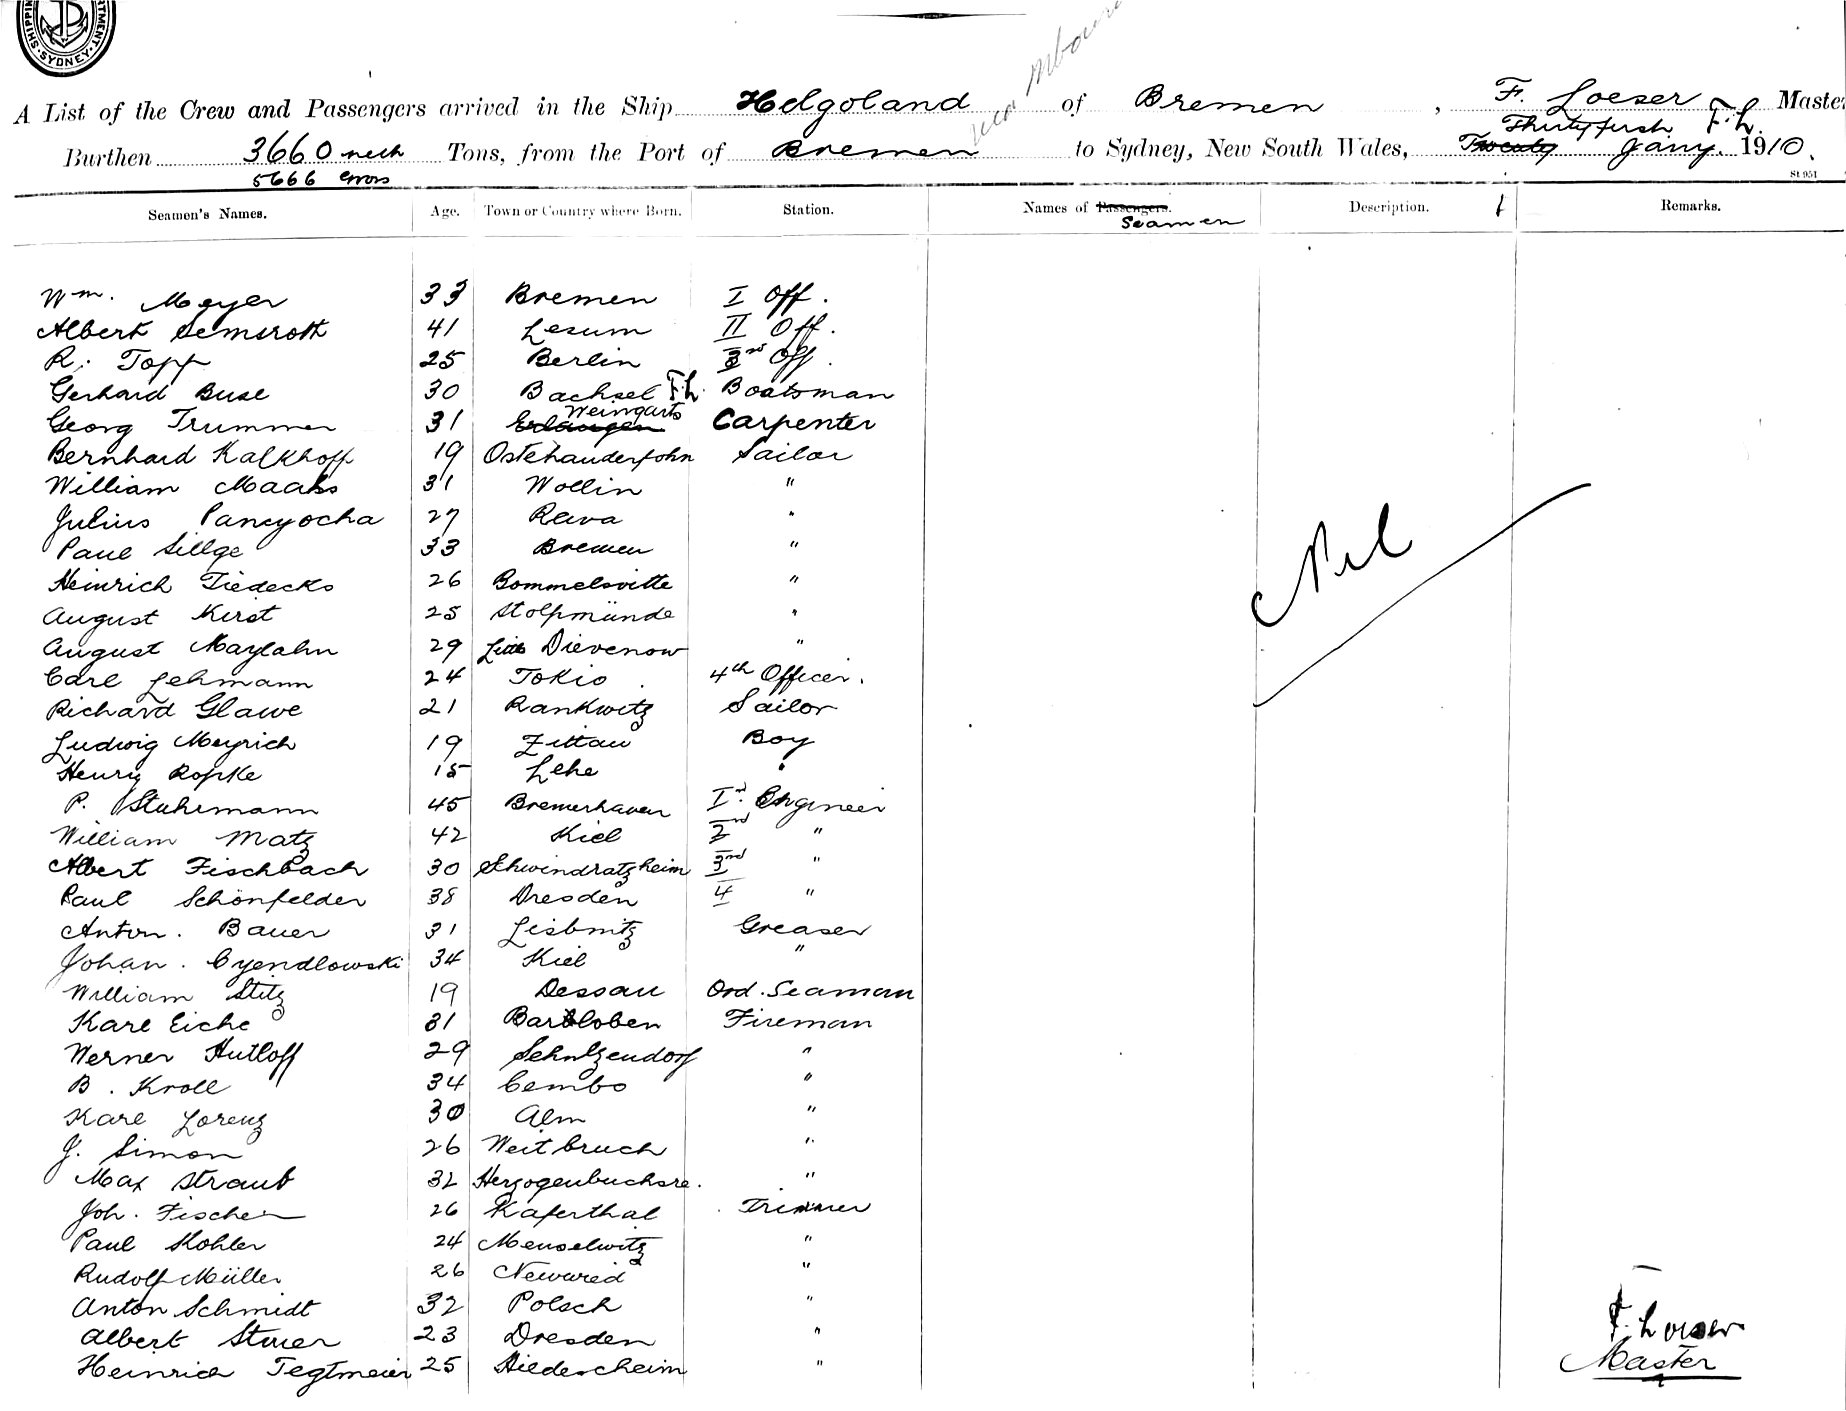 SHIPPIN RTMENT. SYDNEY.
A List of the Crew and Passengers arrived in the Ship Helgoland of Bremen, F. Loeser Master
Thirty first F. L.
Burthen 3660 nett Tons, from the Port of Bremen to Sydney, New South Wales, Twenty Jany. 1910.
5666
St 951
Seamen's Names. Age. Town or Country where Born. Station. Names of Passengers. Description. Remarks.
Seamen
Wm. Meyer 33 Bremen I Off.
Albert Semsroth 41 Lesum II Off.
R. Topp 25 Berlin 3rd Off.
Gerhard Buse 30 Bachsel F.L. Boatsman
Weingarts
Georg Trummer 31 Erlangen Carpenter
Bernhard Kalkhoff 19 Ostehauderfehn Sailor
William Maass 31 Wollin "
Julius 27 Rewa "
Paul Sillge 33 Bremen "
Heinrich Tiedecks 26 Bommelsvitte "
August Kirst 25 Stolpmünde "
August Maylahn 29 Dievenow "
Carl Lehmann 24 Tokio 4th Officer.
Richard Glawe 21 Rankwitz Sailor
Ludwig Meyrich 19 Zittau Boy
Henry Ropke 15 Lehe "
P. Stuhrmann 45 Bremerhaven I Engineer
William Matz 42 Kiel 2nd "
Albert Fischbach 30 Schwindratzheim 3rd "
Paul Schönfelder 38 Dresden 4 "
Anton. Bauer 31 Greaser
Johan. Cyendlowski 34 Kiel "
William Stitz 19 Dessau Ord. Seaman
Karl Eiche 31 Barbloben Fireman
Werner Hutloff 29 Schulzendorf "
B. Kroll 34 Cembo "
Karl Lorenz 30 Alm "
J. Simon 26 Weitbruch "
Max Straub 32 Herzogenbuchsee. "
Joh. Fischer 26 Kaferthal Trimmer
Paul Kohler 24 Meuselwitz "
Rudolf Müller 26 Neuwied "
Anton Schmidt 32 Polsch "
Albert Sturer 23 Dresden "
Heinrich Tegtmeier 25 Hildescheim "
Nil
F. Loeser
Master